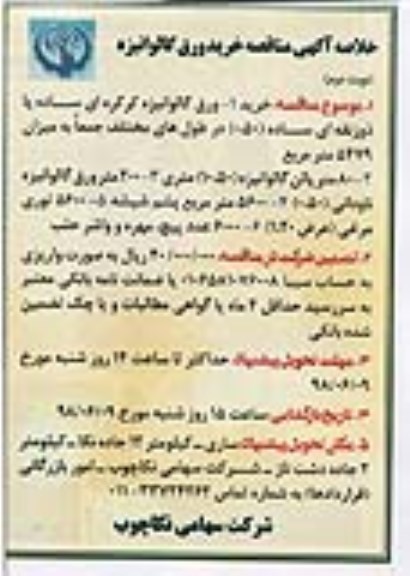 خلاصه آگهی مناقصه خرید ورق گالوانیزه
(نوبت دوم)
۱. موضوع مناقصه: خرید ۱- ورق گالوانیزه کرکره ای ساده یا
ذوزنقه ای ساده (۰.۵۰) در طول های مختلف جمعاً به میزان
۵۴۷۹ متر مربع
گالوانیزه (۰.۵۰) متری ۳- ۲۰۰ متر ورق گالوانیزه
(۰.۵۰) ۴- ۵۶۰۰ متر مربع پشم شیشه ۵- ۵۶۰۰ توری
مرغی (عرض ۱.۲۰) ۶- ۶۰۰۰ عدد پیچ، مهره و واشر
۲. تضمین شرکت در مناقصه: ریال به صورت واریزی
به حساب سیبا یا ضمانت نامه بانکی معتبر
به سررسید حداقل ۴ ماه یا گواهی مطالبات و یا چک تضمین
شده بانکی
۳. مهلت تحویل پیشنهاد: حداکثر تا ساعت ۱۴ روز شنبه مورخ
۹۸/۰۶/۰۹
۴. تاریخ بازگشایی: ساعت ۱۵ روز شنبه مورخ ۹۸/۰۶/۰۹
۵. مکان تحویل پیشنهاد: ساری - کیلومتر ۱۳ جاده نکا - کیلومتر
۲ جاده دشت ناز - شرکت سهامی نکاچوب - امور بازرگانی
(قراردادها) به شماره تماس
شرکت سهامی نکاچوب